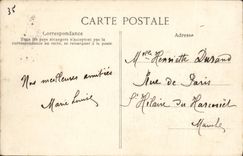 35
CARTE POSTALE
Correspondance
Adresse
Tous les pays étrangers n'acceptent pas la
correspondance au recto, se renseigner à la poste.
Nos meilleures amitiés
Marie Louise
Mlle Henriette Durand
Rue de Paris
St Hilaire du Harcouët
Manche